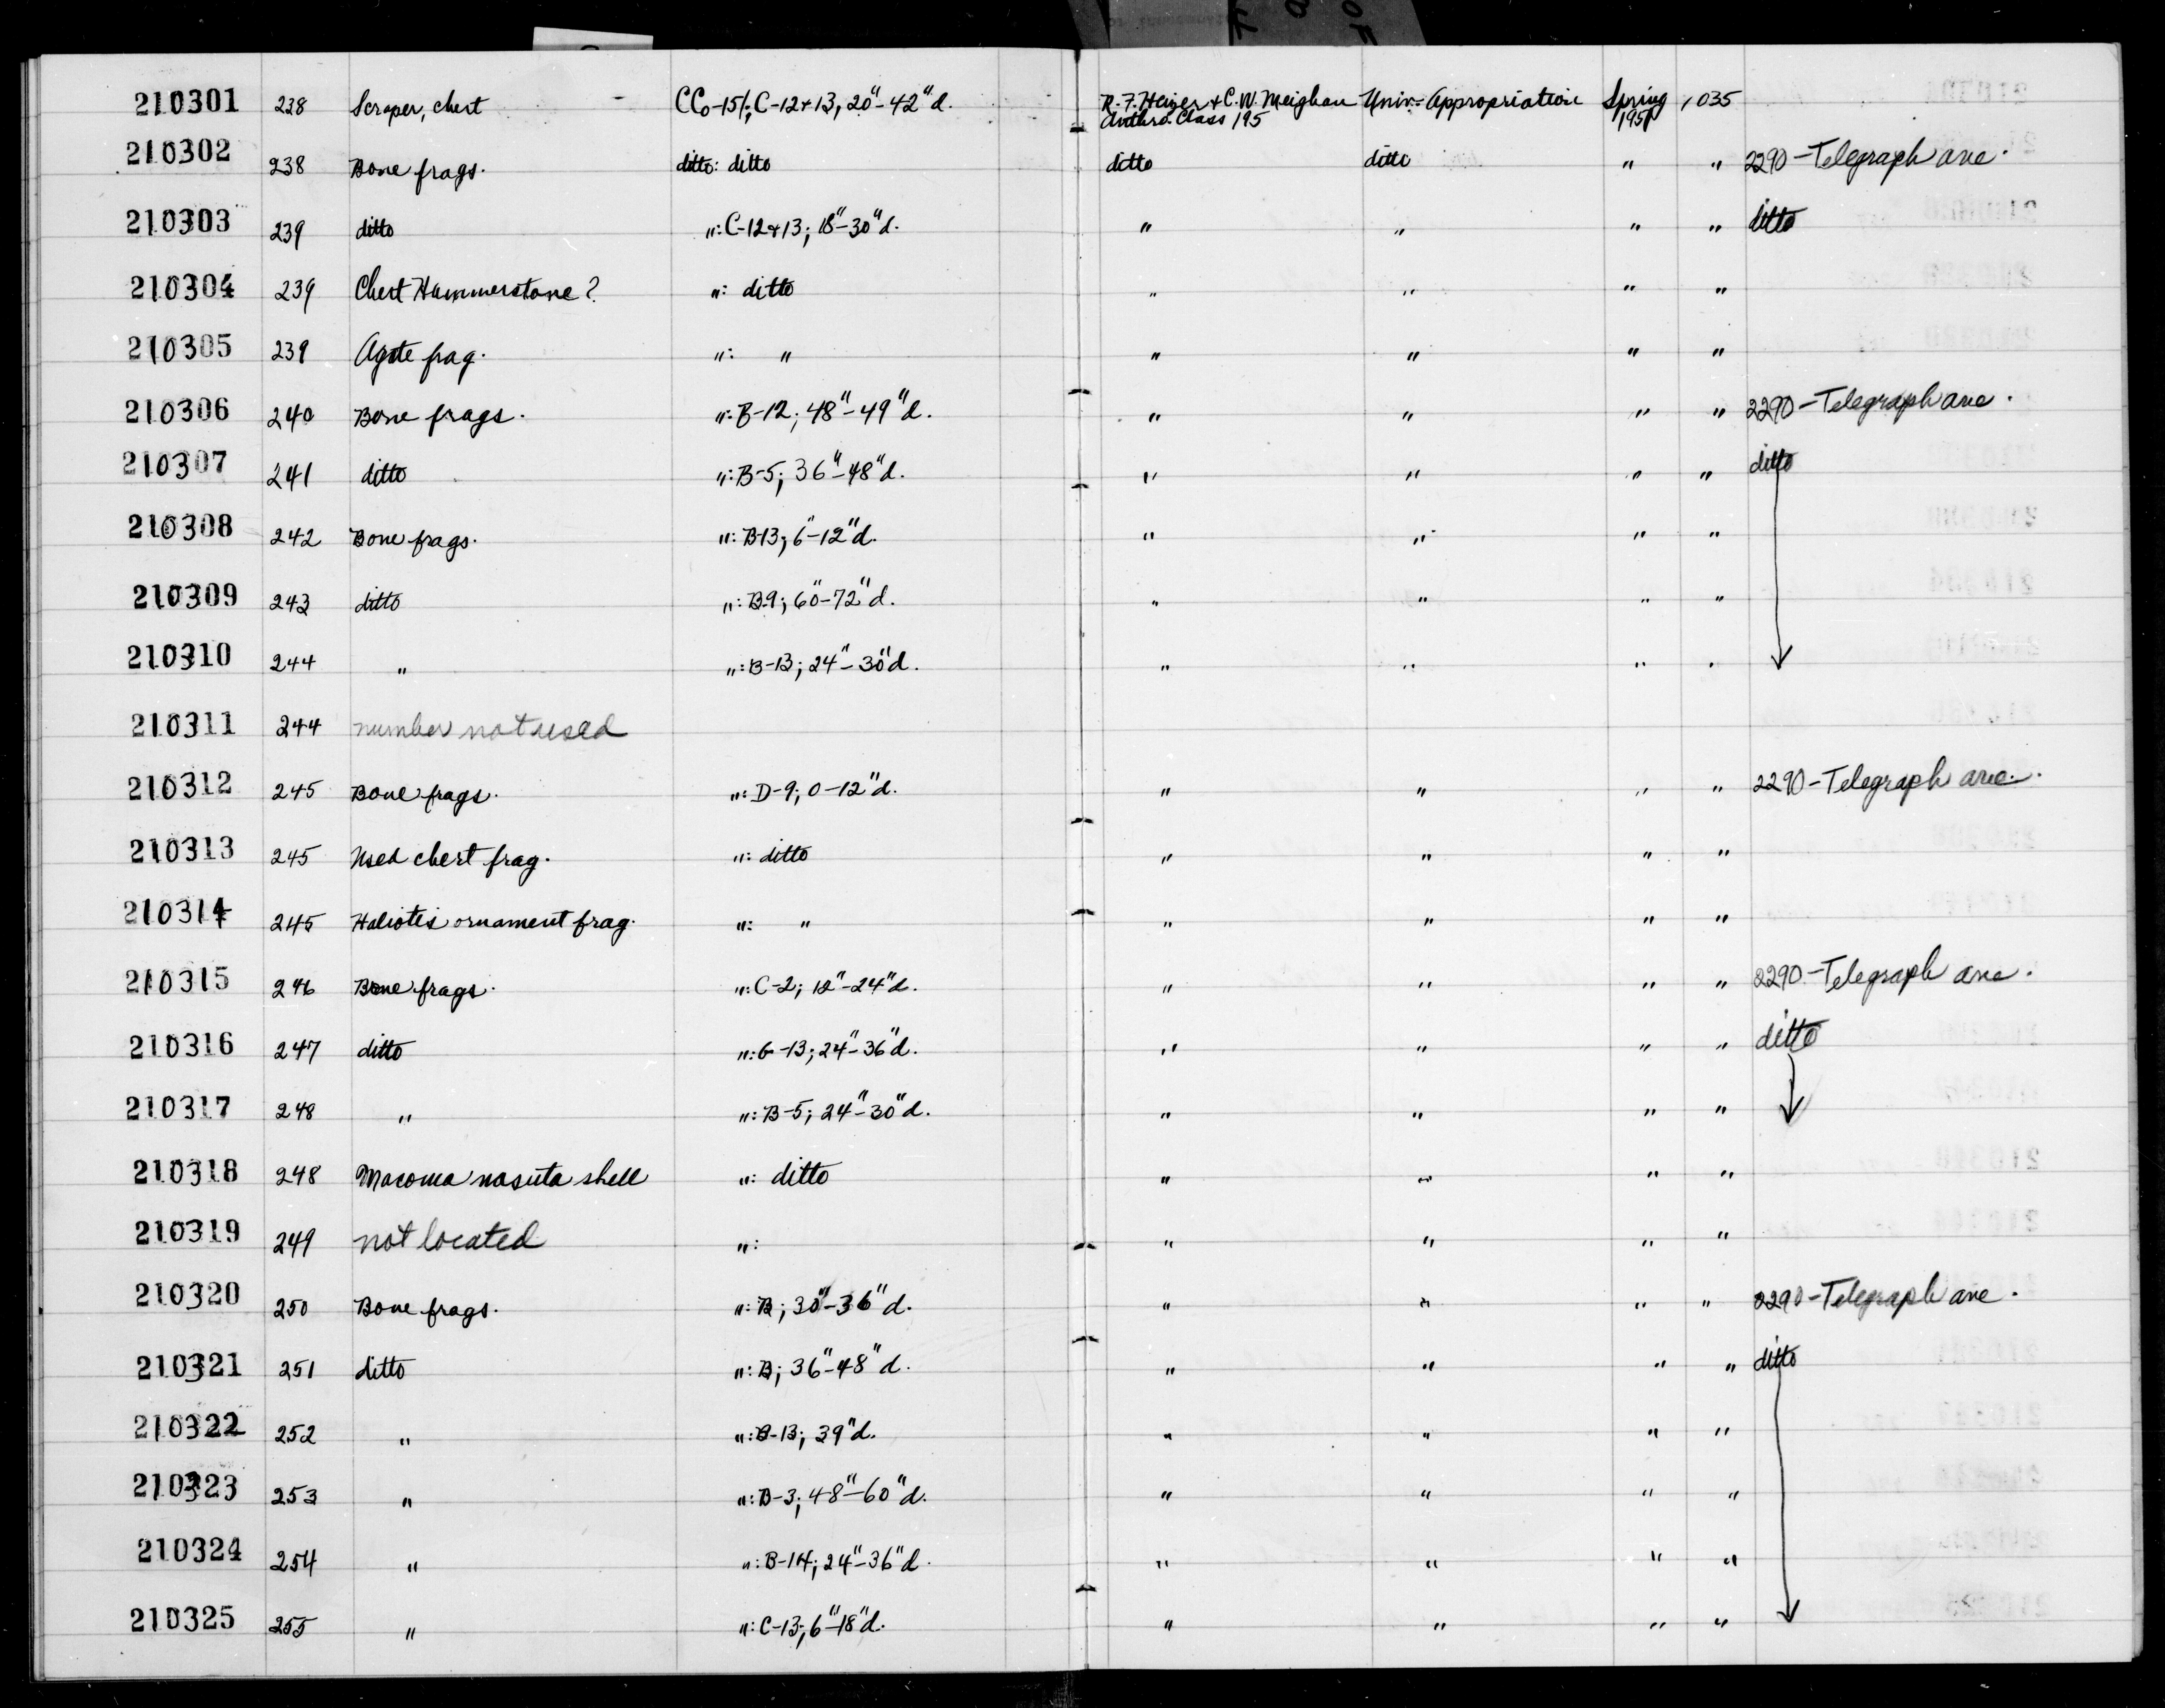 210301 238 Scraper, chert - CCo-151; C-12+13; 20"-42"d. R.F. Heizer + C.W. Meighan Univ. Appropriation Spring 1035
Anthro. Class 195 1951
210302 238 Bone frags. ditto: ditto ditto ditto " " 2290-Telegraph ave.
210303 239 ditto ": C-12+13; 18"-30"d. " " " " ditto
210304 239 Chert Hammerstone? ": ditto " " " "
210305 239 Agate frag. ": " " " " "
210306 240 Bone frags. ": B-12; 48"-49"d. " " " " 2290-Telegraph ave.
210307 241 ditto ": B-5; 36"-48"d. " " " " ditto
210308 242 Bone frags. ": B-13; 6"-12"d. " " " "
210309 243 ditto ": B-9; 60"-72"d. " " " "
210310 244 " ": B-13; 24"-30"d. " " " "
210311 244 number not used
210312 245 Bone frags. ": D-9; 0-12"d. " " " " 2290-Telegraph ave.
210313 245 Used chert frag. ": ditto " " " "
210314 245 Haliotis ornament frag. ": " " " " "
210315 246 Bone frags. ": C-2; 12"-24"d. " " " " 2290-Telegraph ave.
210316 247 ditto ": G-13; 24"-36"d. " " " " ditto
210317 248 " ": B-5; 24"-30"d. " " " "
210318 248 Macoma nasuta shell ": ditto " " " "
210319 249 not located ": " " " "
210320 250 Bone frags. ": B; 30"-36"d. " " " " 2290-Telegraph ave.
210321 251 ditto ": B; 36"-48"d. " " " " ditto
210322 252 " ": B-13; 39"d. " " " "
210323 253 " ": B-3; 48"-60"d. " " " "
210324 254 " ": B-14; 24"-36"d. " " " "
210325 255 " ": C-13; 6"-18"d. " " " "